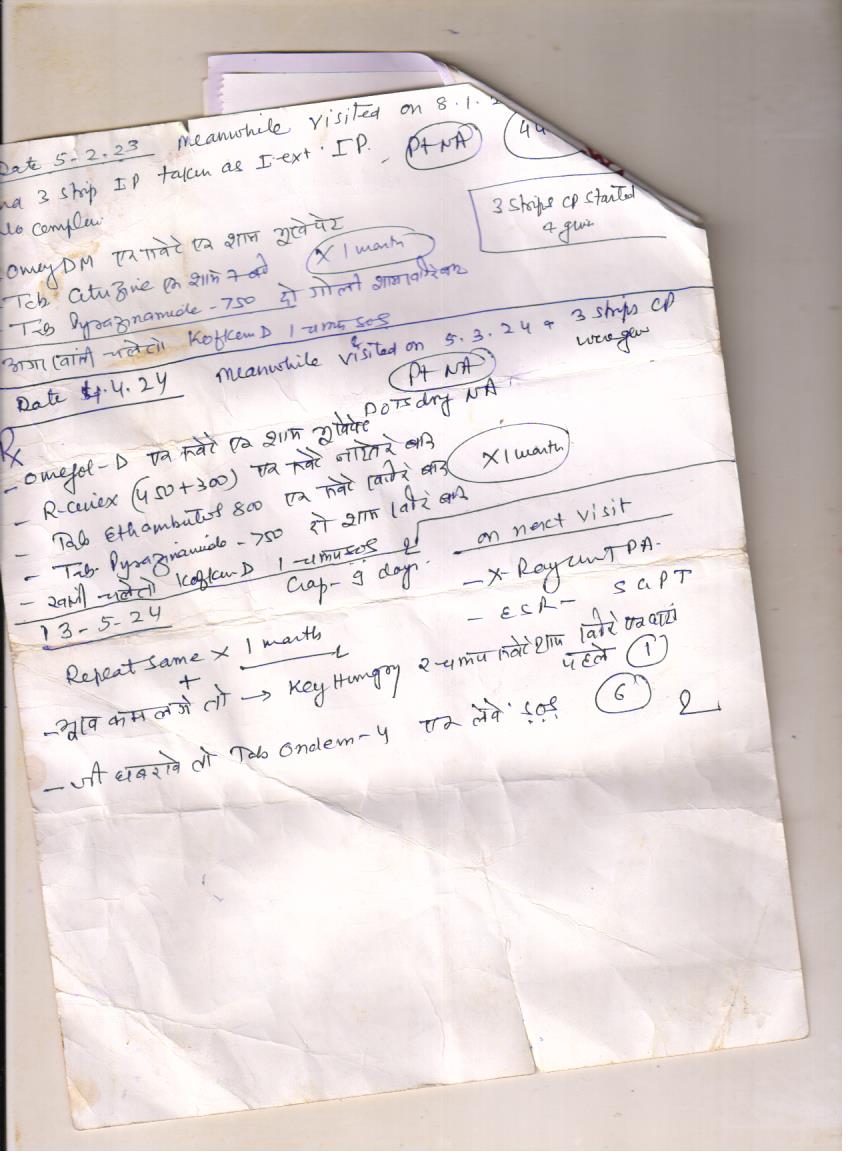 Date 5-2.23 Meanwhile visited on 8.1.2
3 strip IP taken as I-ext. IP. Pt NA 44
3 strips CP started
Omez DM एक सवेरे एक शाम भूखे पेट
Tab. एक शाम 7 बजे X 1 month
Tab Pyrazinamide - 750 दो गोली शाम
चले तो Kofken D 1 चम्मच SOS
Date 4.4.24 Meanwhile visited on 5.3.24 & 3 strips CP
Pt NA
Rx DOTS drug NA
- Omefol-D एक सवेरे एक शाम भूखे पेट
- R-cinex (450+300) एक सवेरे बाद
- Tab Ethambutol 800 एक सवेरे बाद X 1 month
- Tab. Pyrazinamide - 750 दो शाम बाद
- खांसी चले तो Kofken D 1 चम्मच SOS
Gap - 9 days. on next visit
- X-Ray PA.
- ESR - SGPT
13-5-24
Repeat same X 1 month
+
- भूख कम लगे तो → Key Hungry 2 चम्मच सवेरे शाम
पहले 1
- जी घबरावे तो Tab Ondem-4 एक लेवें SOS 6